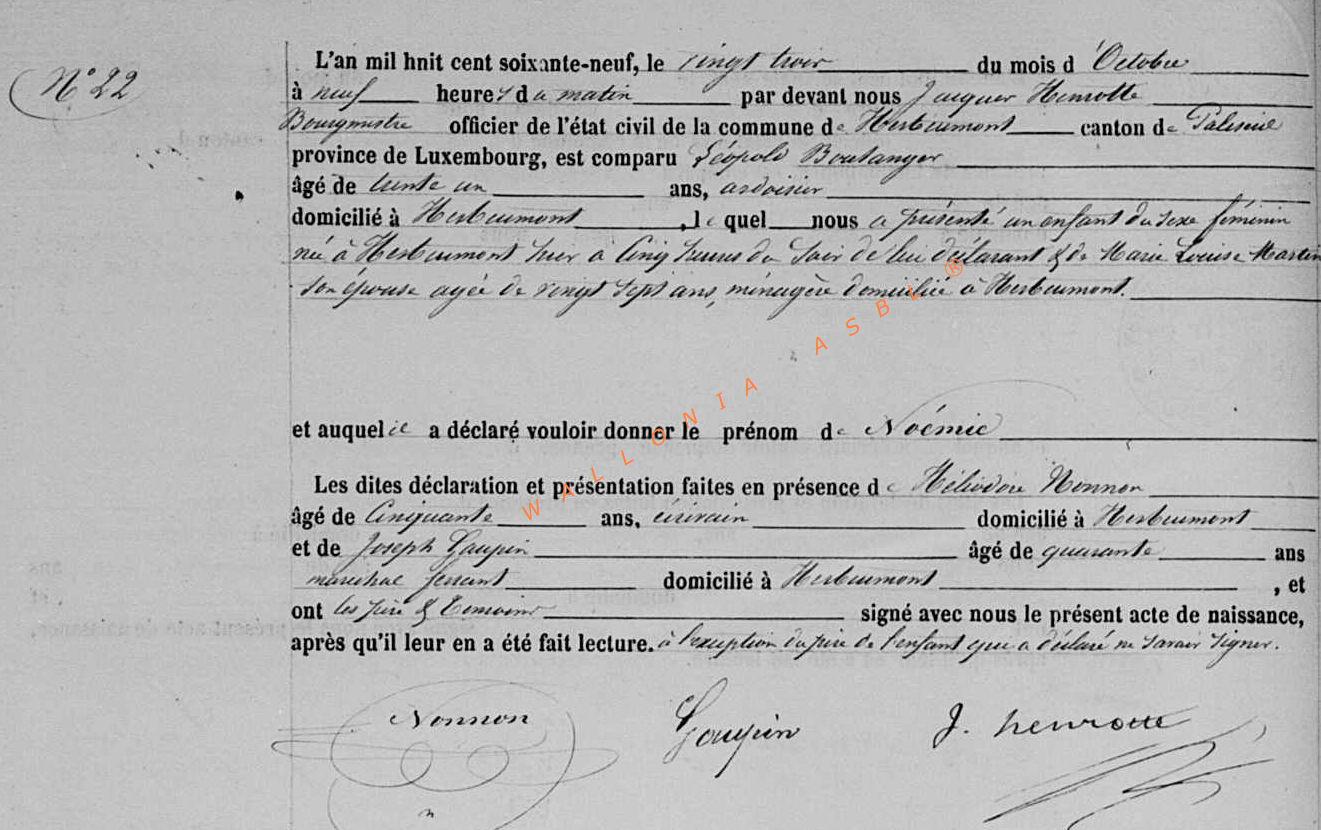 N° 22
L'an mil huit cent soixante-neuf, le vingt trois du mois d'Octobre
à neuf heures du matin par devant nous Jacques Henrotte
Bourgmestre officier de l'état civil de la commune de Herbeumont canton de Paliseul
province de Luxembourg, est comparu Léopold Boulanger
âgé de trente un ans, ardoisier
domicilié à Herbeumont, le quel nous a présenté un enfant du sexe féminin
née à Herbeumont hier à Cinq heures du Soir de lui déclarant & de Marie Louise Martin
son épouse agée de vingt sept ans, ménagère domiciliée à Herbeumont.
et auquel il a déclaré vouloir donner le prénom de Noémie
Les dites déclaration et présentation faites en présence de Héliodore Nonnon
âgé de Cinquante ans, écrivain domicilié à Herbeumont
et de Joseph Gaupin âgé de quarante ans
maréchal ferrant domicilié à Herbeumont, et
ont les père & témoins signé avec nous le présent acte de naissance,
après qu'il leur en a été fait lecture. à l'exception du père de l'enfant qui a déclaré ne savoir signer.
Nonnon Gaupin J. henrotte
WALLONIA ASBL ®